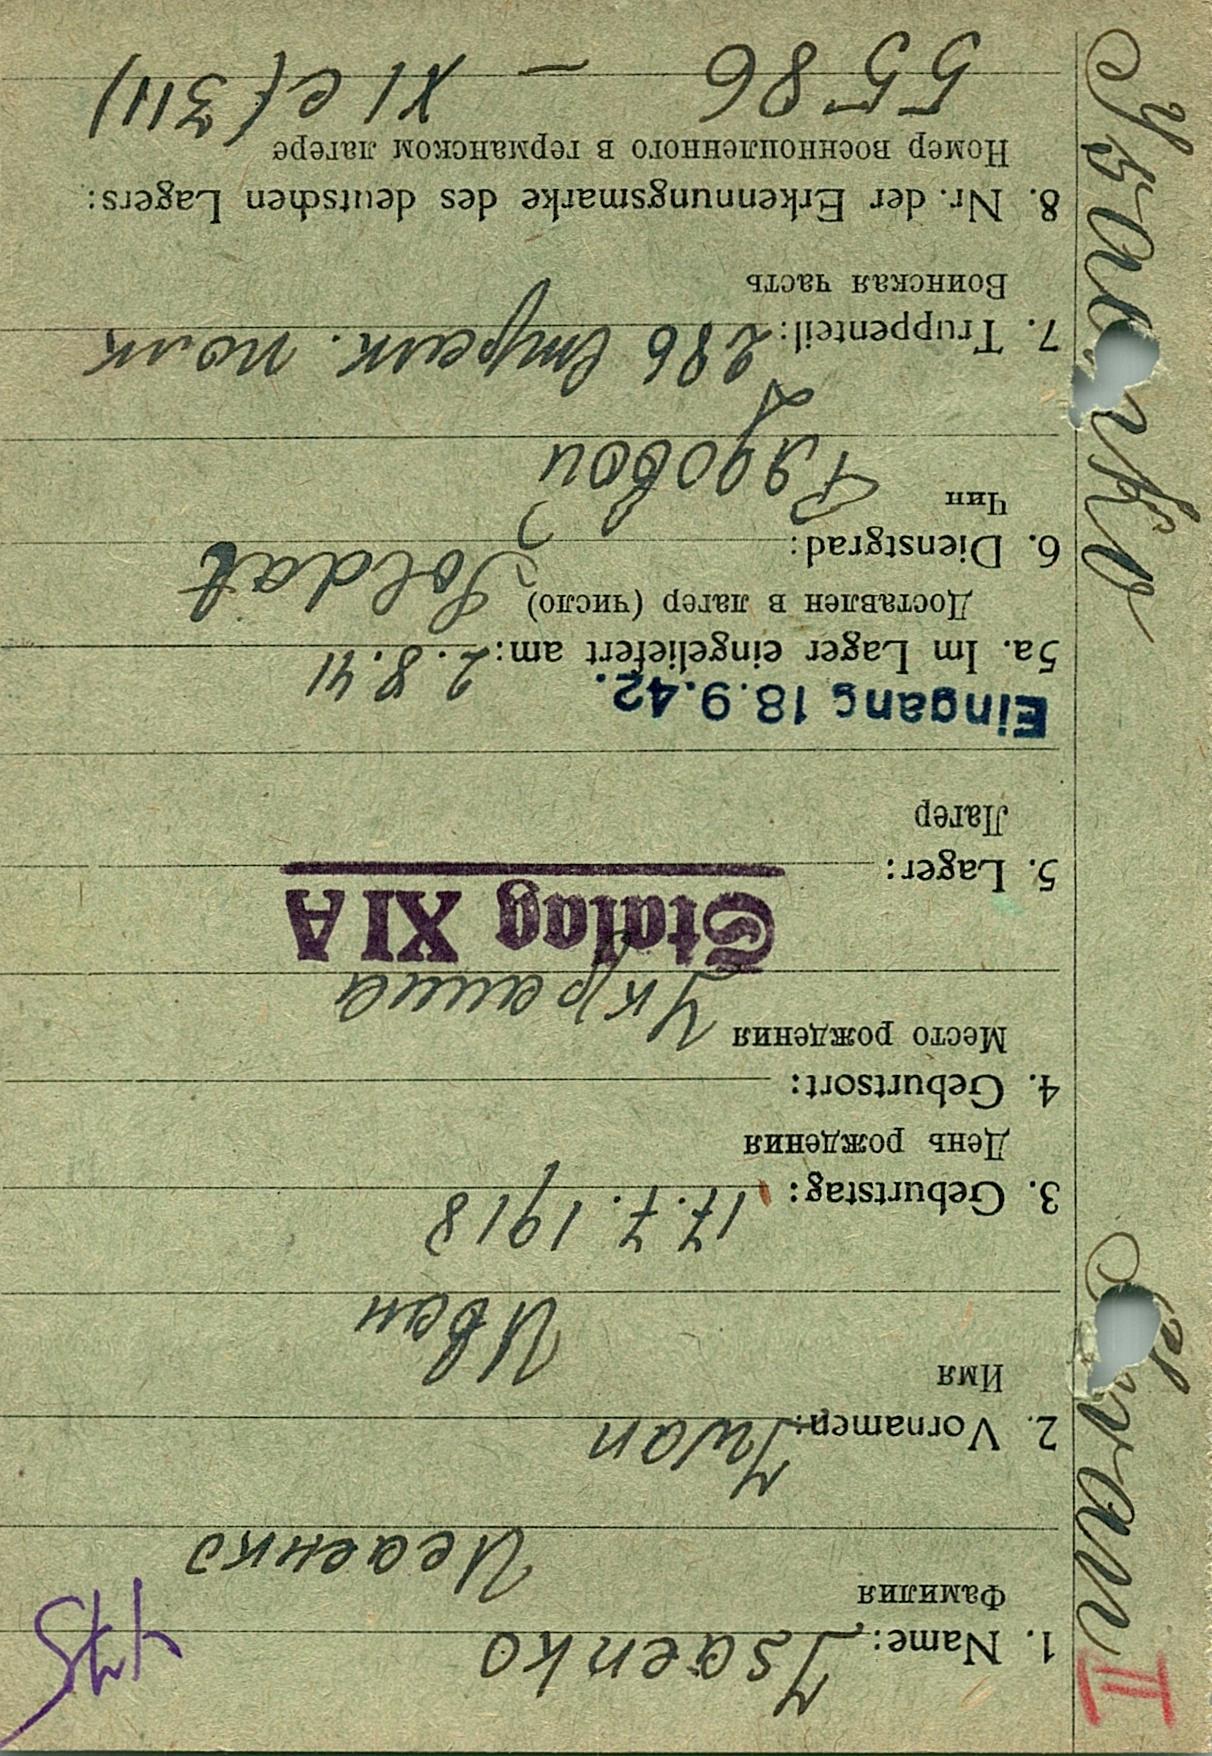 II
1. Name: Isaenko
Фамилия Исаенко
2. Vornamen: Iwan
Имя Иван
3. Geburtstag: 17.7.1918
День рождения
4. Geburtsort:
Место рождения Украина
Stalag XI A
5. Lager:
Лагер
Eingang 18.9.42.
5a. Im Lager eingeliefert am: 2.8.41
Доставлен в лагер (число)
6. Dienstgrad: Soldat
Чин Рядовой
7. Truppenteil: 286 стрелк. полк
Воинская часть
8. Nr. der Erkennungsmarke des deutschen Lagers:
Номер военнопленного в германском лагере
5586 – XI C (311)